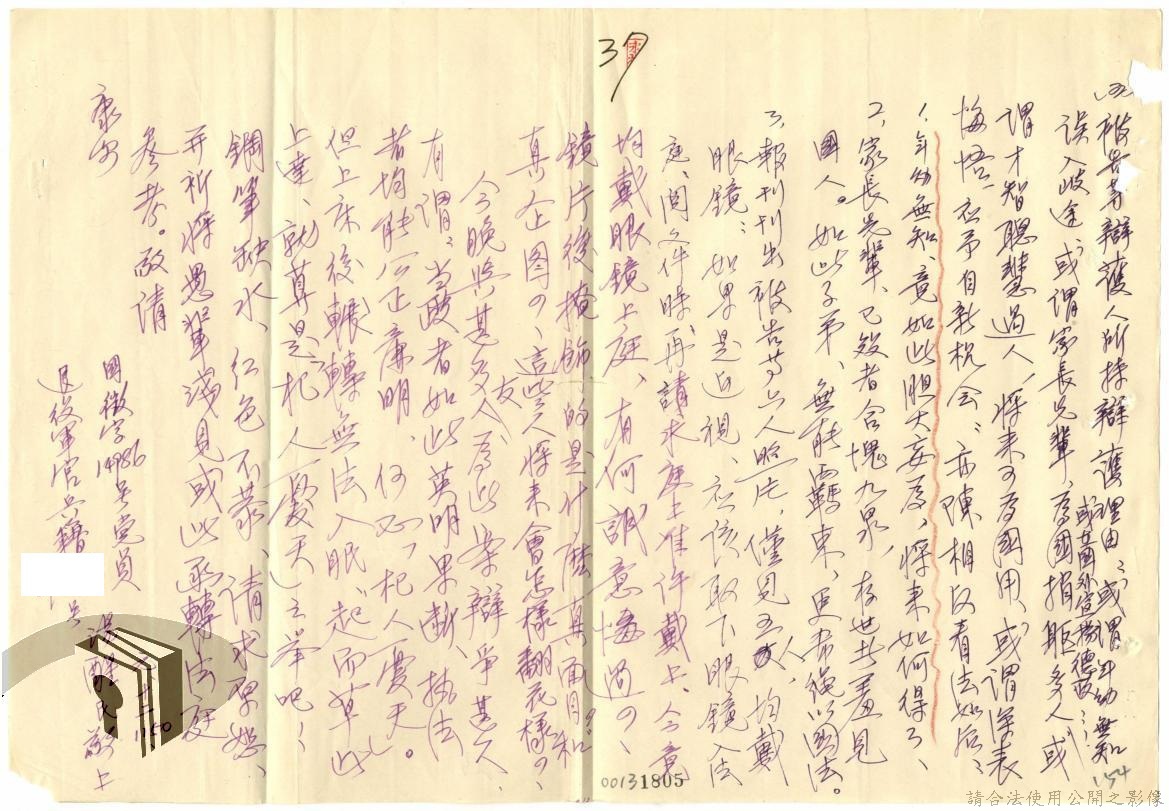 ㈤被告等辯護人所持辯護理由：或謂年幼無知
誤入歧途，或謂家長先輩，為國捐軀多人，或
或曾國外宣揚德政：
謂才智聰慧過人，將來可為國用，或謂深表
悔悟，應予自新机会，亦陳相反看法如后：
1、年幼無知、竟如此胆大妄為，將來如何得了、
2、家長先輩、已歿者含愧九泉，存世者羞見
國人。如此子弟、無能霸東、更常繩以國法。
3、報刊刊出被告等六人照片，僅見五人均戴
眼鏡：如果是近視、應該取下眼鏡入法
庭、閱文件時再請求庭上准許戴上、今竟
均戴眼鏡上庭、有何誠意悔過の、
鏡片後掩飾的是什麼真面目？和
真企图の、這些人將來會怎樣翻花樣の、
今晚與某多友人為此案辯爭甚久、
有謂：当政者如此英明果断、执法
者均能公正廉明、何必「杞人憂天」。
但上床後輾轉無法入眠、起而草此
上達、就算是「杞人憂天」之举吧！
鋼筆缺水、红色不恭、請求原恕、
并祈將愚輩淺見或此函轉法庭
參考。敬請
康安
國徽字14986號党員
退役軍官兵籍 號
敬上
37
154
00131805
請合法使用公開之影像